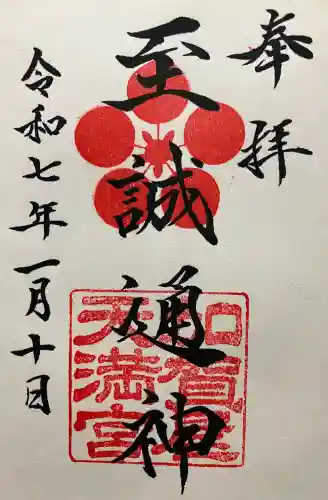 奉拝
至誠通神
令和七年一月十日
加賀星
天満宮